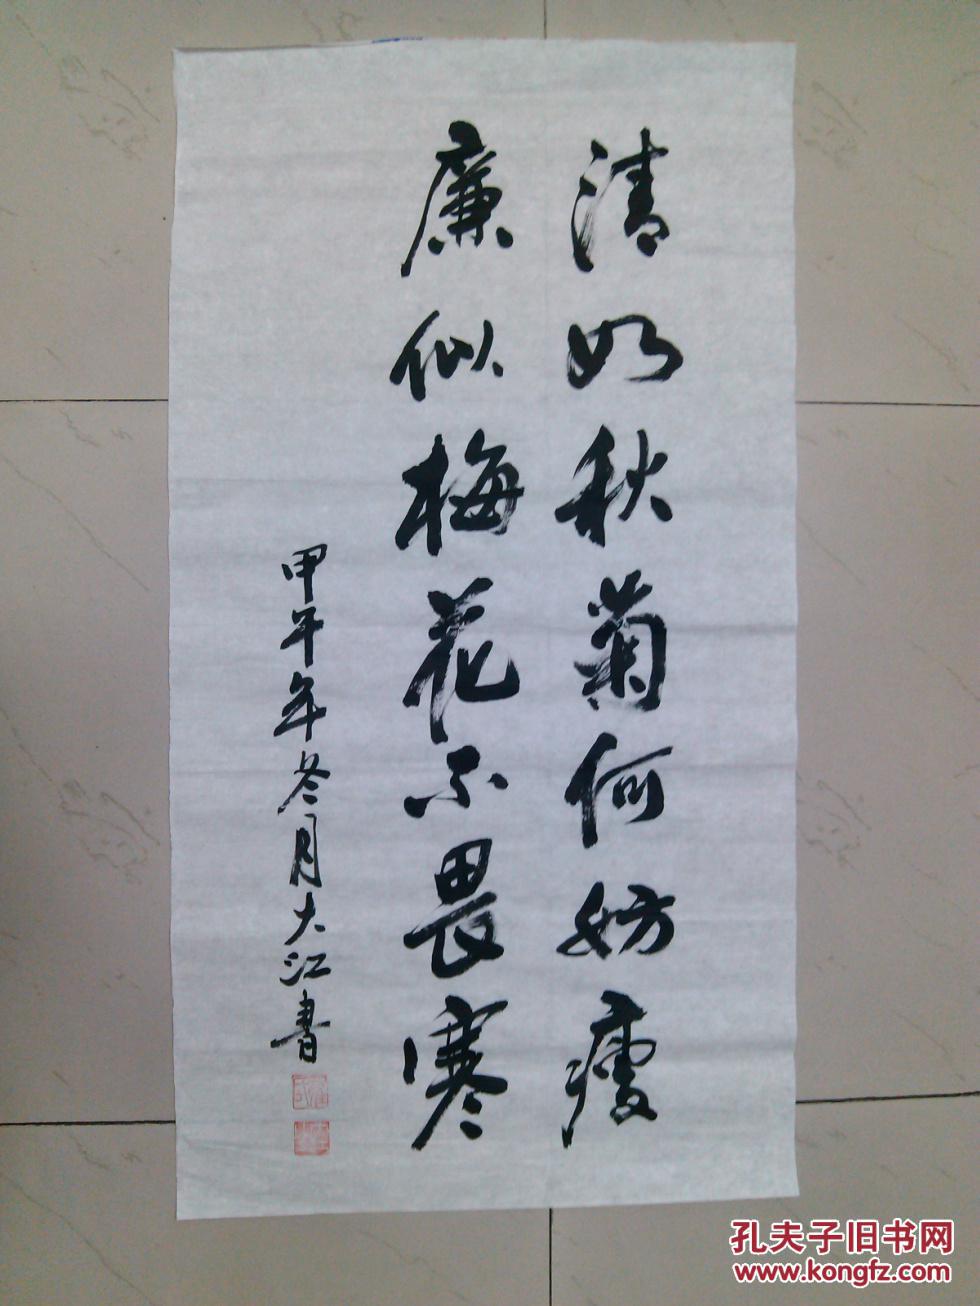 清如秋菊何妨瘦
廉似梅花不畏寒
甲午年冬月大江書
孔夫子旧书网
www.kongfz.com